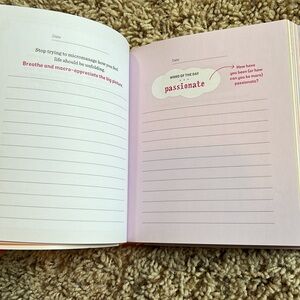 Date
Stop trying to micromanage how you feel
life should be unfolding.
Breathe and macro-appreciate the big picture.
Date
WORD OF THE DAY
passionate
How have
you been (or how
can you be more)
passionate?